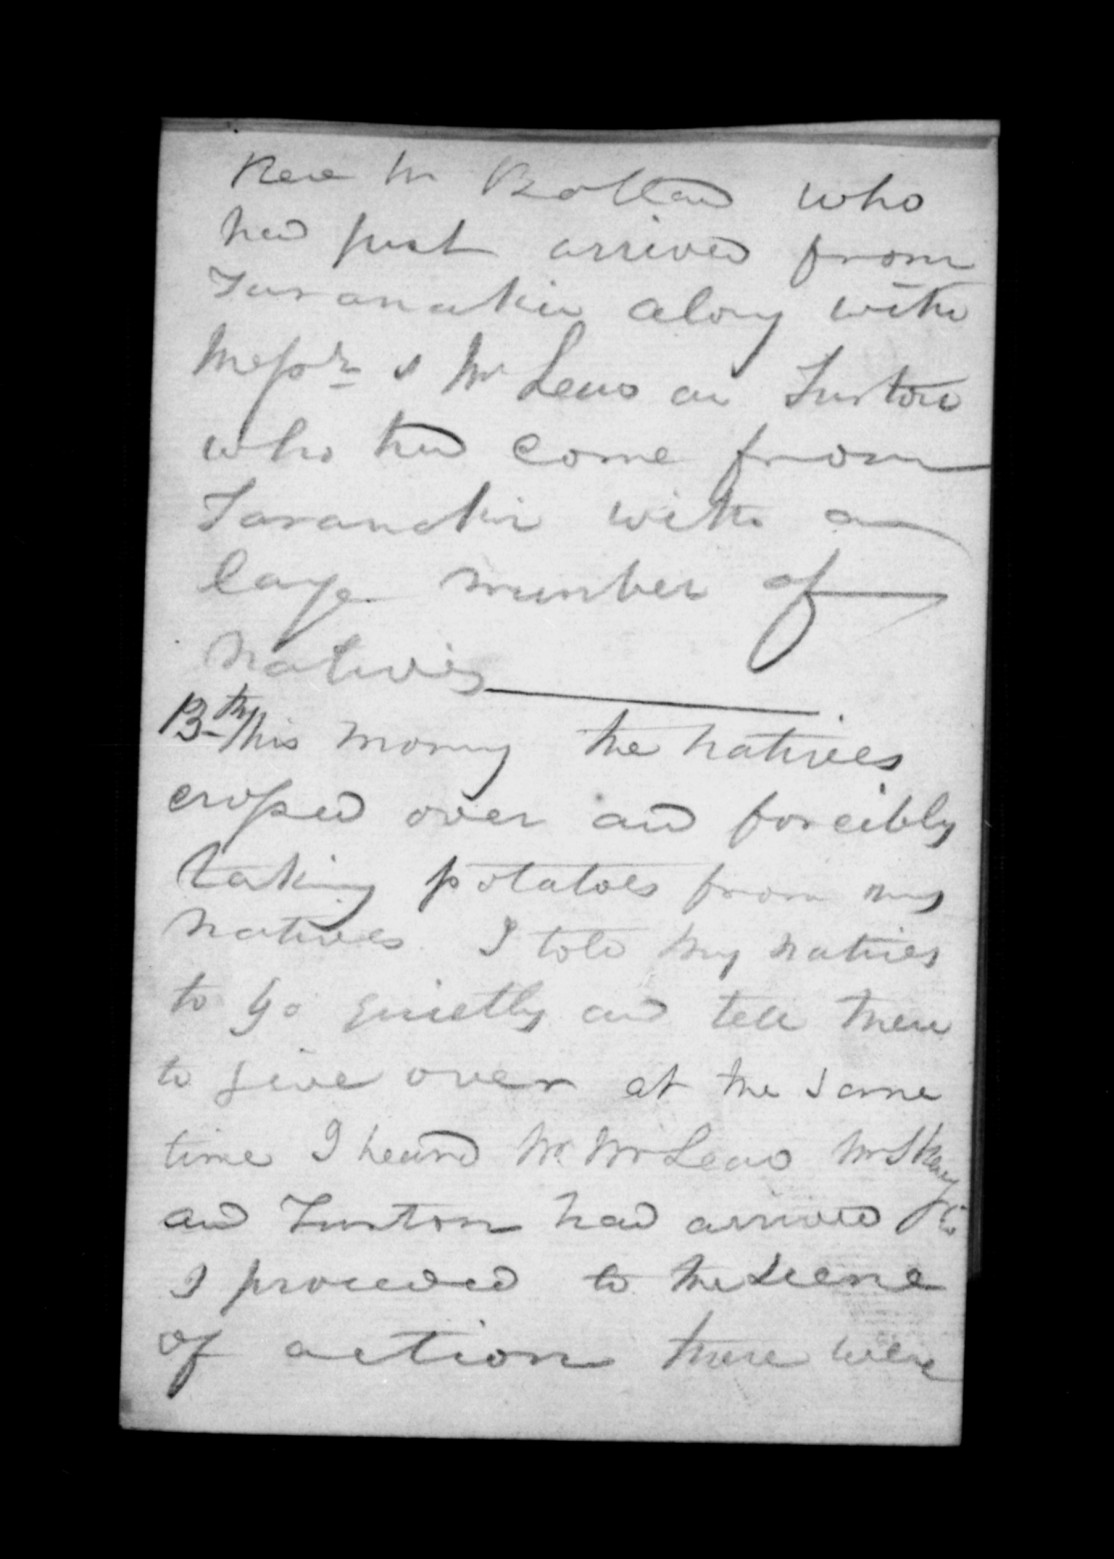 Revd Mr Bolland who
had just arrived from
Taranakie along with
Messrs & Mr Lean an Turton
who had come from
Taranakie with a
large number of
natives
13th This morning the natives
crossed over and forcibly
taking potatoes from my
natives I told my natives
to go quietly and tell them
to give over at the same
time I heard Mr McLean Mr Skevy
and Turton had arrived &c
I proceeded to the Scene
of action there were